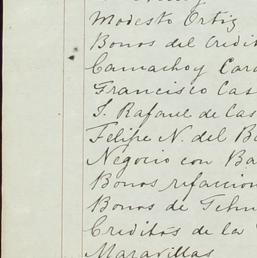 Modesto Ortiz
Bonos del Credit
Camacho y Car
Francisco Cas
S. Rafael de Cas
Felipe N. del Ba
Negocio con Ba
Bonos refaccion
Bonos de Tehu
Creditos de la
Maravillas